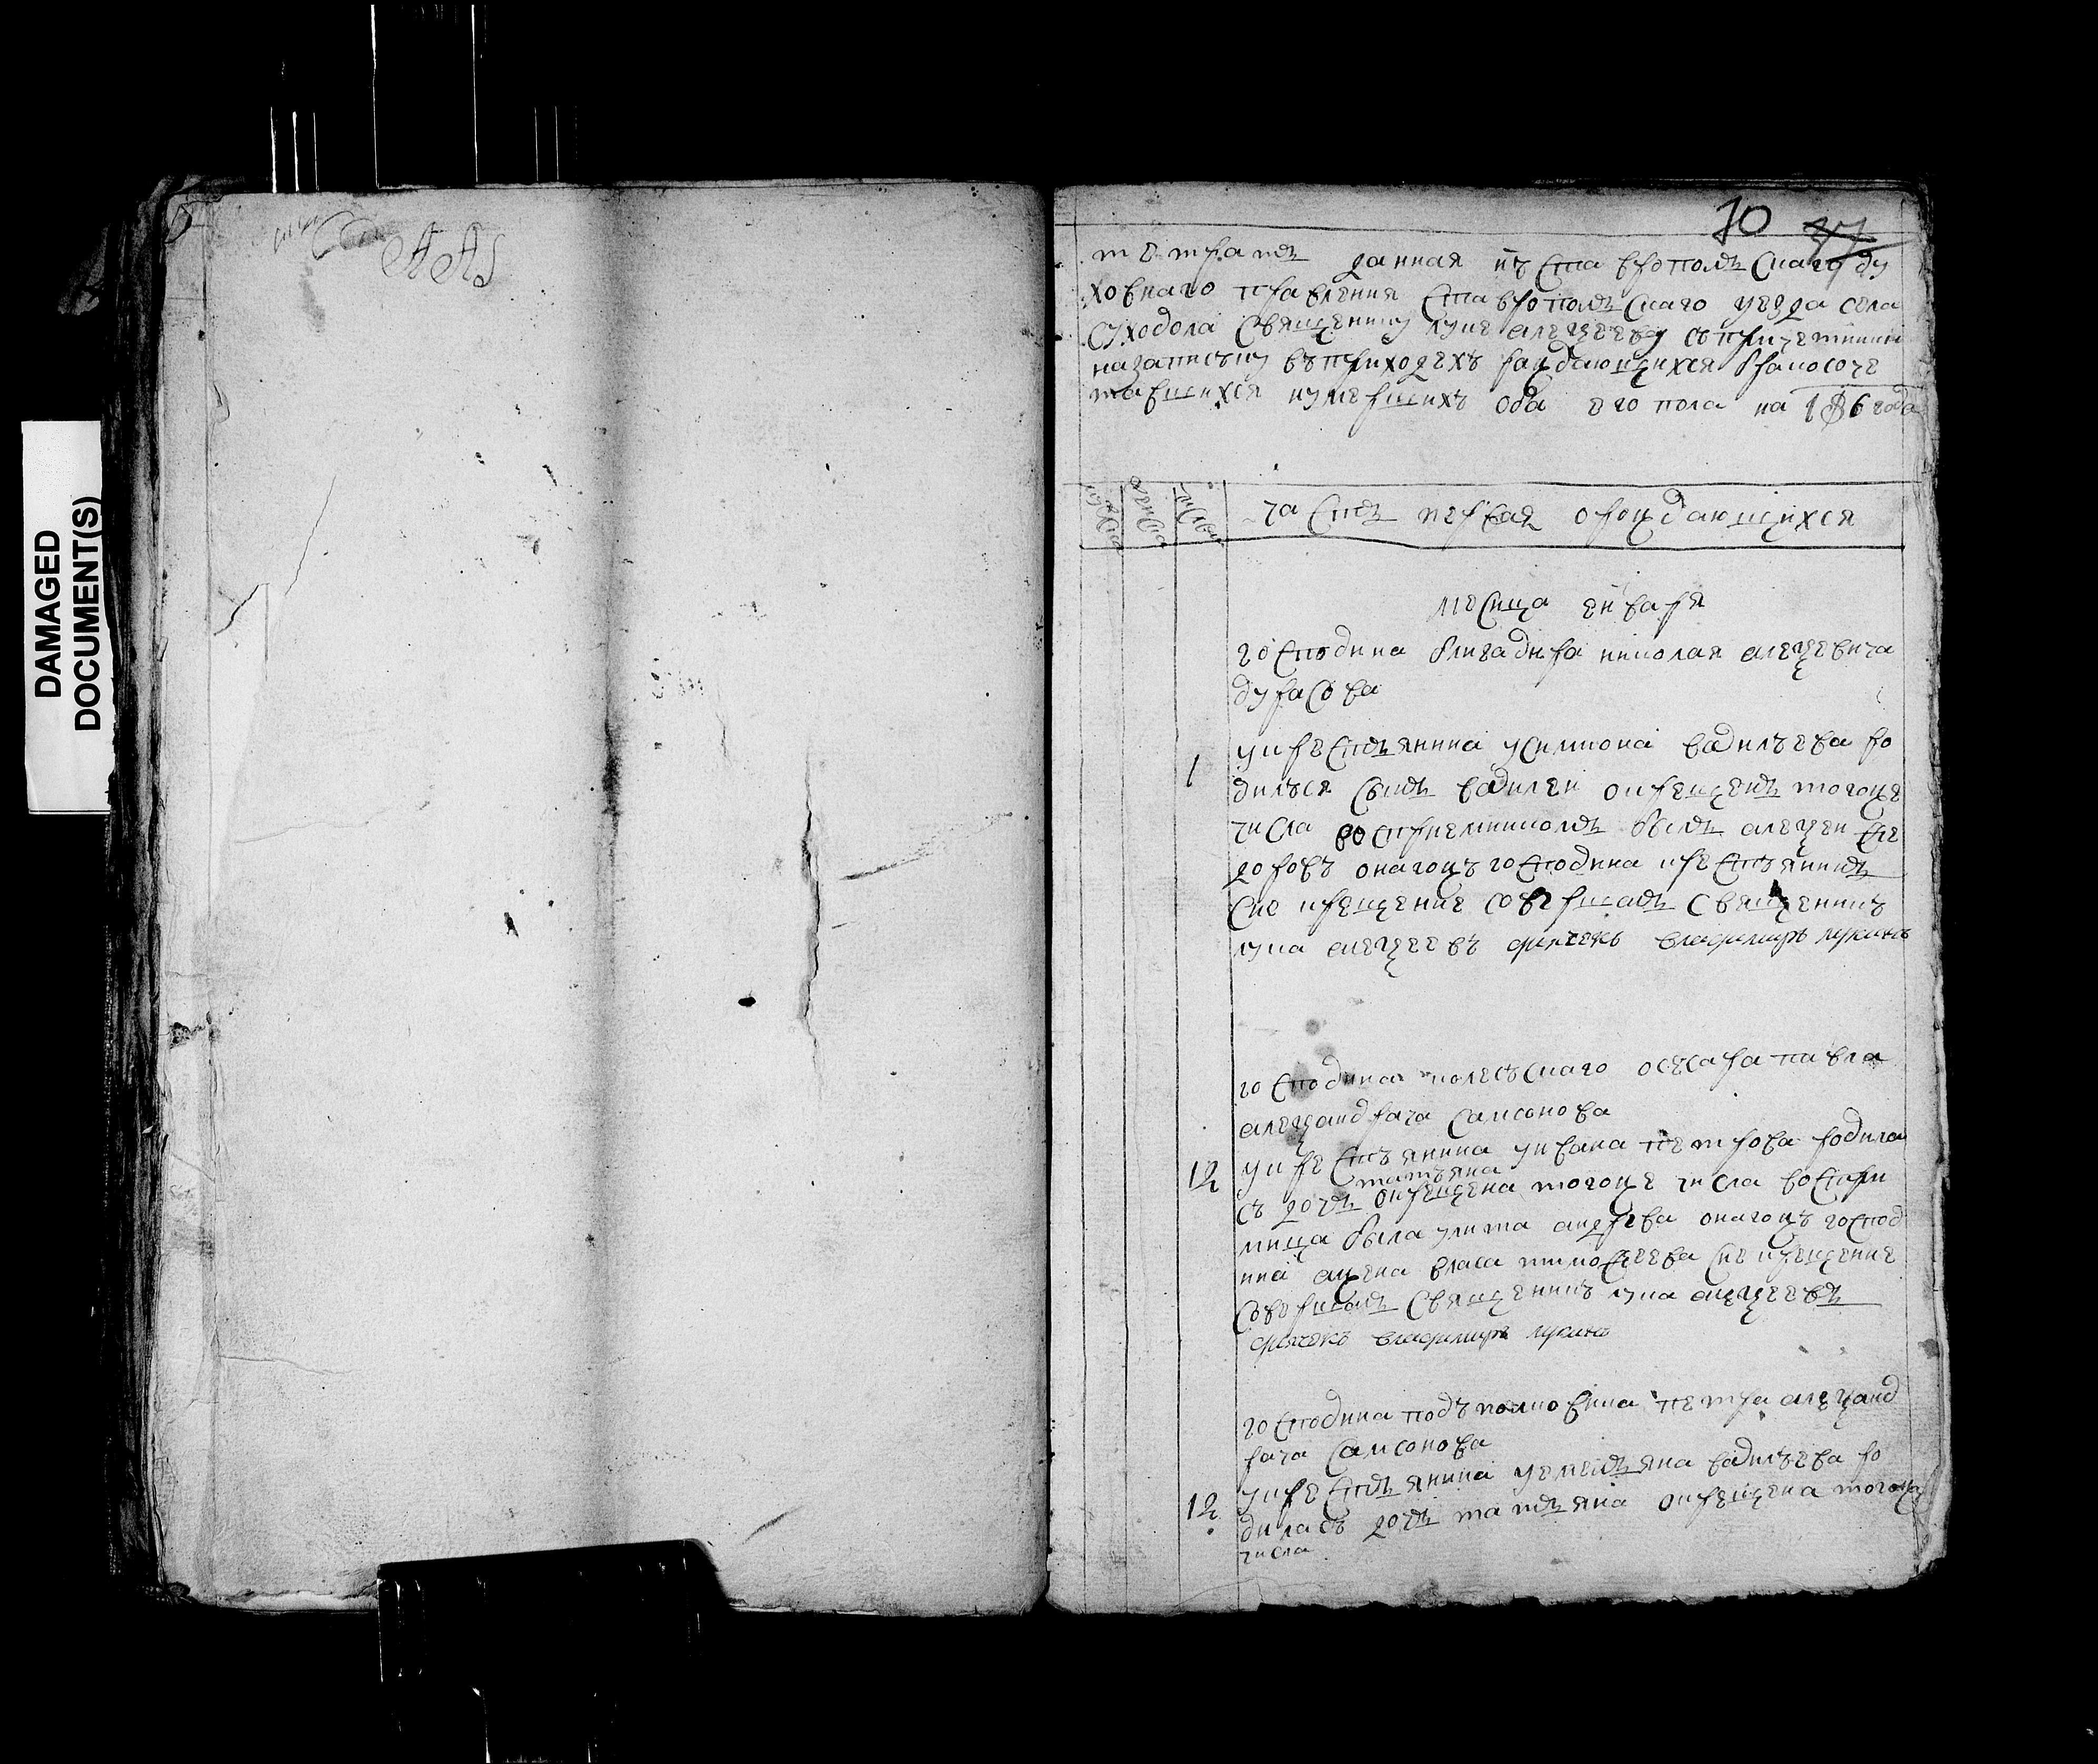 DAMAGED
DOCUMENT(S)
10
37
тетрать данная изъ ставропольскаго ду
ховнаго правления ставропольскаго уезда села
суходола священнику луке алексееву съ причетники
на записъку въ приходехъ раждающихся бракосоче
тавшихся и умершихъ обоего пола на 1806 года
часть первая о рождающихся
месица енъваря
господина бригадира николая алексевича
дурасова
1
у крестьянина у симиона вавилъева ро
дилъся сынъ вавилеи окрещенъ тогоже
числа восприемникомъ былъ алексеи фе
доровъ онагожъ господина крестьянинъ
сие крещение совершалъ священникъ
лука алексеевъ дьячекъ владимиръ лукинъ
господина полесъскаго есъсара павла
александрача самсонова
12
у крестъянина у ивана петрова родила
татъяна
съ дочь окрещена тогоже числа воспри
мница была улита андрева онагожъ господ
ина жена власа тимофеева сие крещение
совершалъ священникъ лука алексеевъ
дьячекъ владимиръ лукинъ
господина подъполковника петра александ
рача самсонова
12
у крестьянина у емельяна вавилъева ро
диласъ дочь татьяна окрещена тогожъ
числа